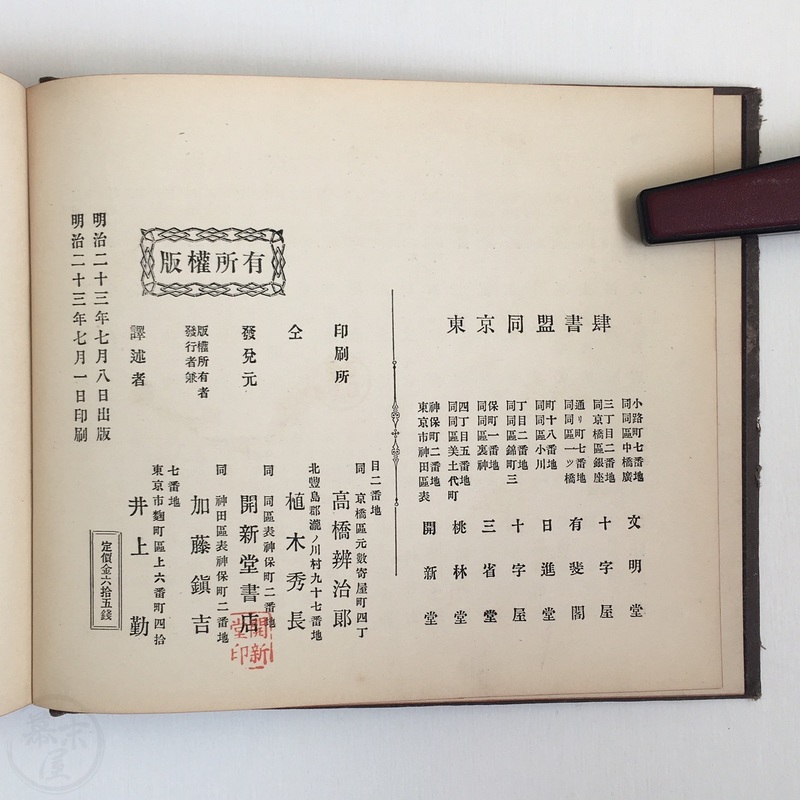 明治二十三年七月一日印刷
明治二十三年七月八日出版
版權所有
定價金六拾五錢
譯述者
東京市麴町區上六番町四拾
七番地
井上勤
發行者兼
版權所有者
同 神田區表神保町二番地
加藤鎭吉
發兌元
同 同區表神保町二番地
開新堂書店
開新堂印
仝
北豐島郡瀧ノ川村九十七番地
植木秀長
印刷所
同 京橋區元數寄屋町四丁
目二番地
高橋辨治郎
東京同盟書肆
東京市神田區表
神保町二番地
開新堂
同同區美土代町
四丁目五番地
桃林堂
同同區裏神
保町一番地
三省堂
同同區錦町三
丁目二番地
十字屋
同同區小川
町十八番地
日進堂
同同區一ツ橋
通リ町七番地
有斐閣
同京橋區銀座
三丁目二番地
十字屋
同同區中橋廣
小路町七番地
文明堂
幕末屋